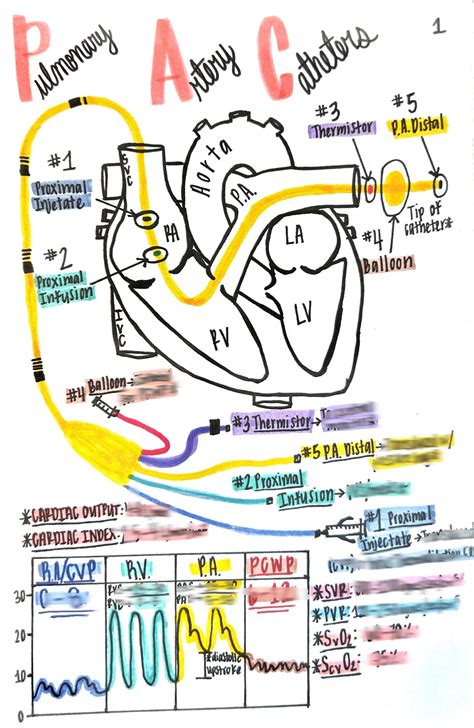 Pulmonary Artery Catheters
1
#1
Proximal
Injetate
#2
Proximal
Infusion
SVC
IVC
RA
RV
Aorta
P.A.
LA
LV
#3
Thermistor
#5
P.A. Distal
Tip of
Catheter*
#4
Balloon
#4 Balloon→
#3 Thermistor→
#5 P.A. Distal→
#2 Proximal
Infusion→
#1 Proximal
Injectate→
*CARDIAC OUTPUT:
*CARDIAC INDEX:
RA/CVP
R.V.
P.A.
PCWP
30
20
10
0
*diastolic
upstroke
*SVR:
*PVR:
*SvO2:
ScvO2: